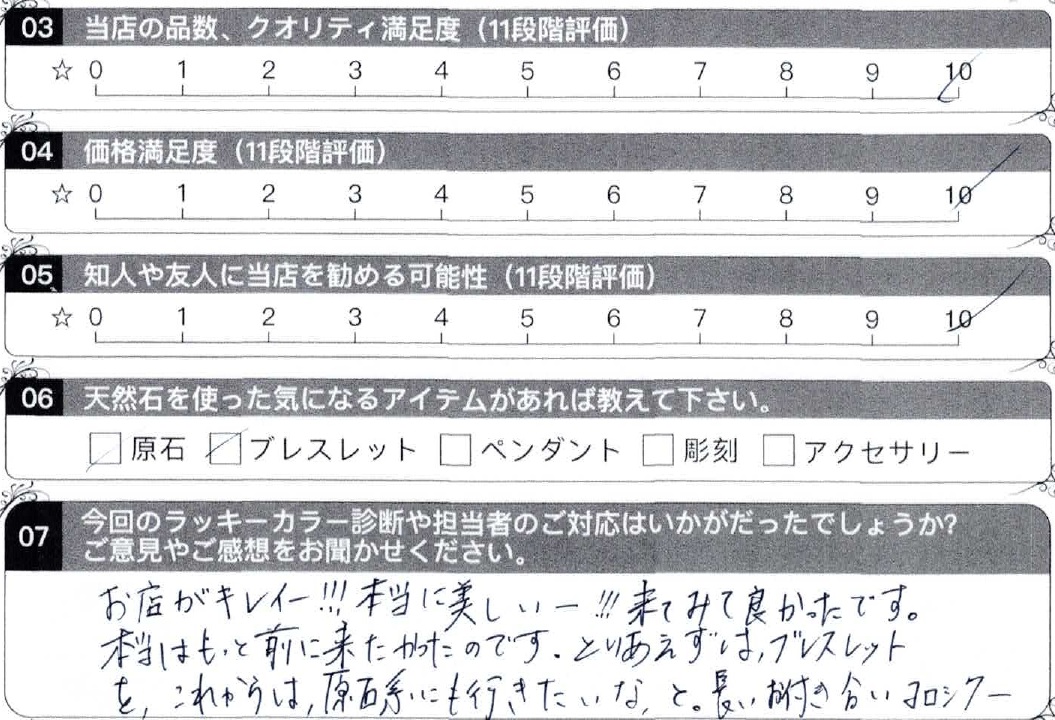 03 当店の品数、クオリティ満足度（11段階評価）
☆ 0 1 2 3 4 5 6 7 8 9 10
04 価格満足度（11段階評価）
☆ 0 1 2 3 4 5 6 7 8 9 10
05 知人や友人に当店を勧める可能性（11段階評価）
☆ 0 1 2 3 4 5 6 7 8 9 10
06 天然石を使った気になるアイテムがあれば教えて下さい。
原石 ブレスレット ペンダント 彫刻 アクセサリー
07 今回のラッキーカラー診断や担当者のご対応はいかがだったでしょうか?
ご意見やご感想をお聞かせください。
お店がキレイー!!! 本当に美しいー!!! 来てみて良かったです。
本当はもっと前に来たかったのです. とりあえずは, ブレスレット
を, これからは, 原石系にも行きたいな, と。長いお付き合いヨロシクー